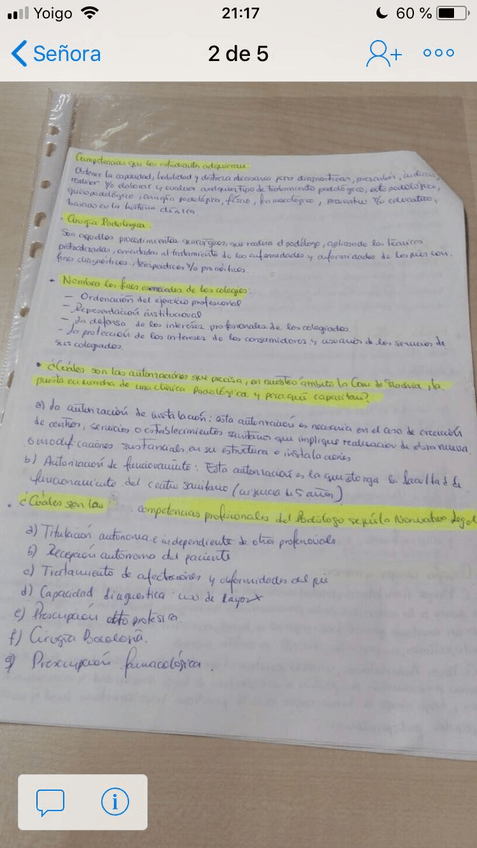 Yoigo 21:17 60 %
Señora 2 de 5
Competencias que los estudiantes adquieren:
Obtener la capacidad, habilidad y destreza necesaria para diagnosticar, prescribir, indicar,
realizar y/o elaborar y evaluar cualquier tipo de tratamiento podológico, ortopodológico,
quiropodológico, cirugía podológica, físico, farmacológico, preventivo y/o educativo,
basado en la historia clínica
Cirugía Podológica:
Son aquellos procedimientos quirúrgicos, que realiza el podólogo, aplicando las técnicas
protocolizadas, orientados al tratamiento de las enfermedades y deformidades de los pies con
fines diagnósticos, terapéuticos y/o pronósticos.
• Nombra los fines esenciales de los colegios:
– Ordenación del ejercicio profesional
– Representación institucional
– La defensa de los intereses profesionales de los colegiados
– La protección de los intereses de los consumidores y usuarios de los servicios de
sus colegiados.
• ¿Cuáles son las autorizaciones que precisa, en nuestro ámbito la Com. de Madrid, la
puesta en marcha de una clínica Podológica, y para qué capacitan?
a) La autorización de instalación: esta autorización es necesaria en el caso de creación
de centros, servicios o establecimientos sanitarios que implique realización de obra nueva,
o modificaciones sustanciales en su estructura e instalaciones
b) Autorización de funcionamiento: Esta autorización es la que otorga la facultad de
funcionamiento del centro sanitario ( 5 años)
• ¿Cuáles son las competencias profesionales del Podólogo según la Normativa legal
a) Titulación autónoma e independiente de otros profesionales
b) Recepción autónoma del paciente
c) Tratamiento de afectaciones y deformidades del pie
d) Capacidad diagnóstica: uso de Rayos X
e) Prescripción ortoprotésica.
f) Cirugía Podológica.
g) Prescripción farmacológica.